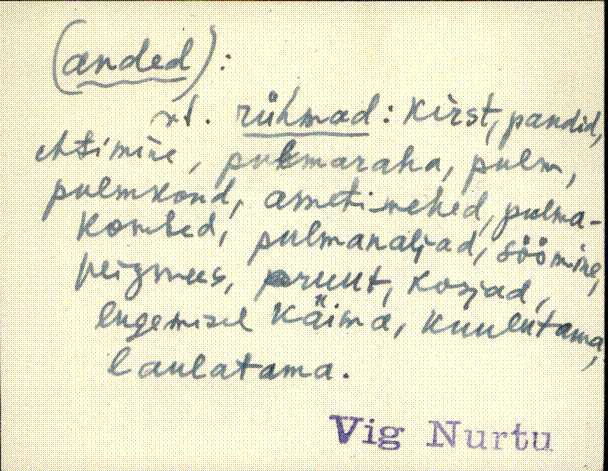 (anded):
vt. rühmad: kirst, pandid,
ehtimine, pulmaraha, pulm,
pulmkond, ametimehed, pulma-
kombed, pulmanaljad, söömine,
peigmees, pruut, kosjad,
lugemisel käima, kuulutama,
laulatama.
Vig Nurtu